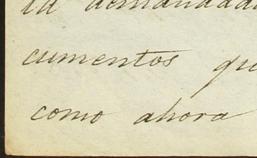 la demandada
cumentos qu
como ahora